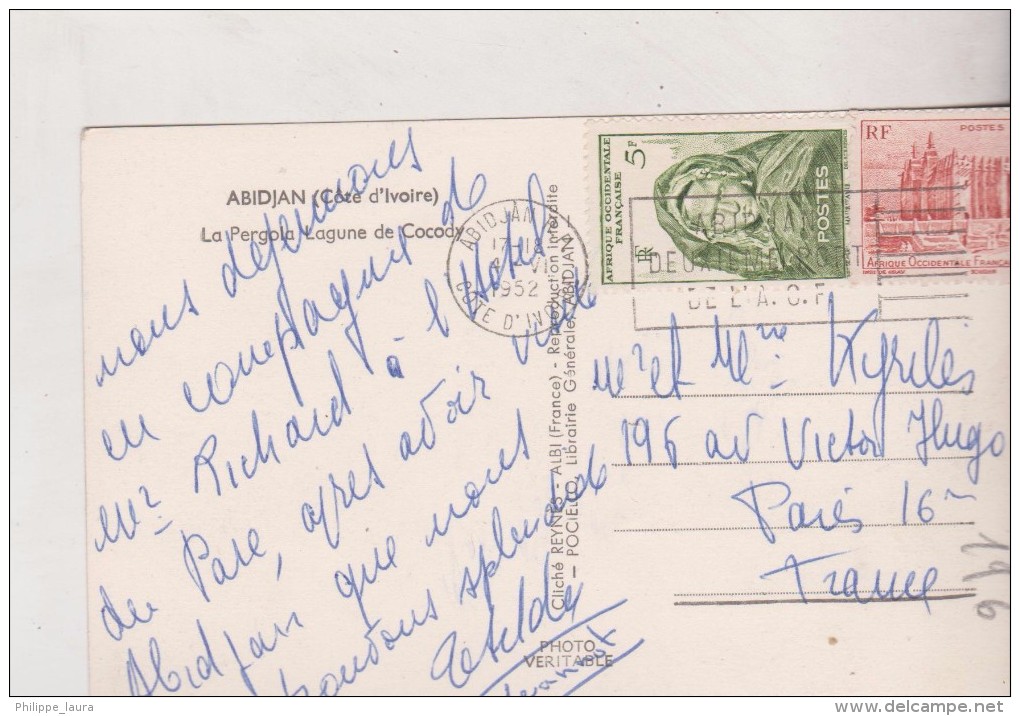 ABIDJAN (Côte d'Ivoire)
La Pergola Lagune de Cocody
nous déjeunons
en compagnie de
Mr Richard à l'Hôtel
du Parc, après avoir visité
Abidjan que nous
trouvons splendide
Cliché REYNES - ALBI (France) - Reproduction interdite
— POCIELLO, Librairie Générale, ABIDJAN —
PHOTO
VERITABLE
ABIDJAN
17-18
VI
1952
COTE D'IVOIRE
ABIDJAN
DEUXIEME PORT
DE L'A.O.F
AFRIQUE OCCIDENTALE
FRANÇAISE
5F
RF
POSTES
MAURITANIE
RF
POSTES
AFRIQUE OCCIDENTALE FRANÇA
Mr et Mme Kyriles
196 av Victor Hugo
Paris 16me
France
196
Philippe_laura